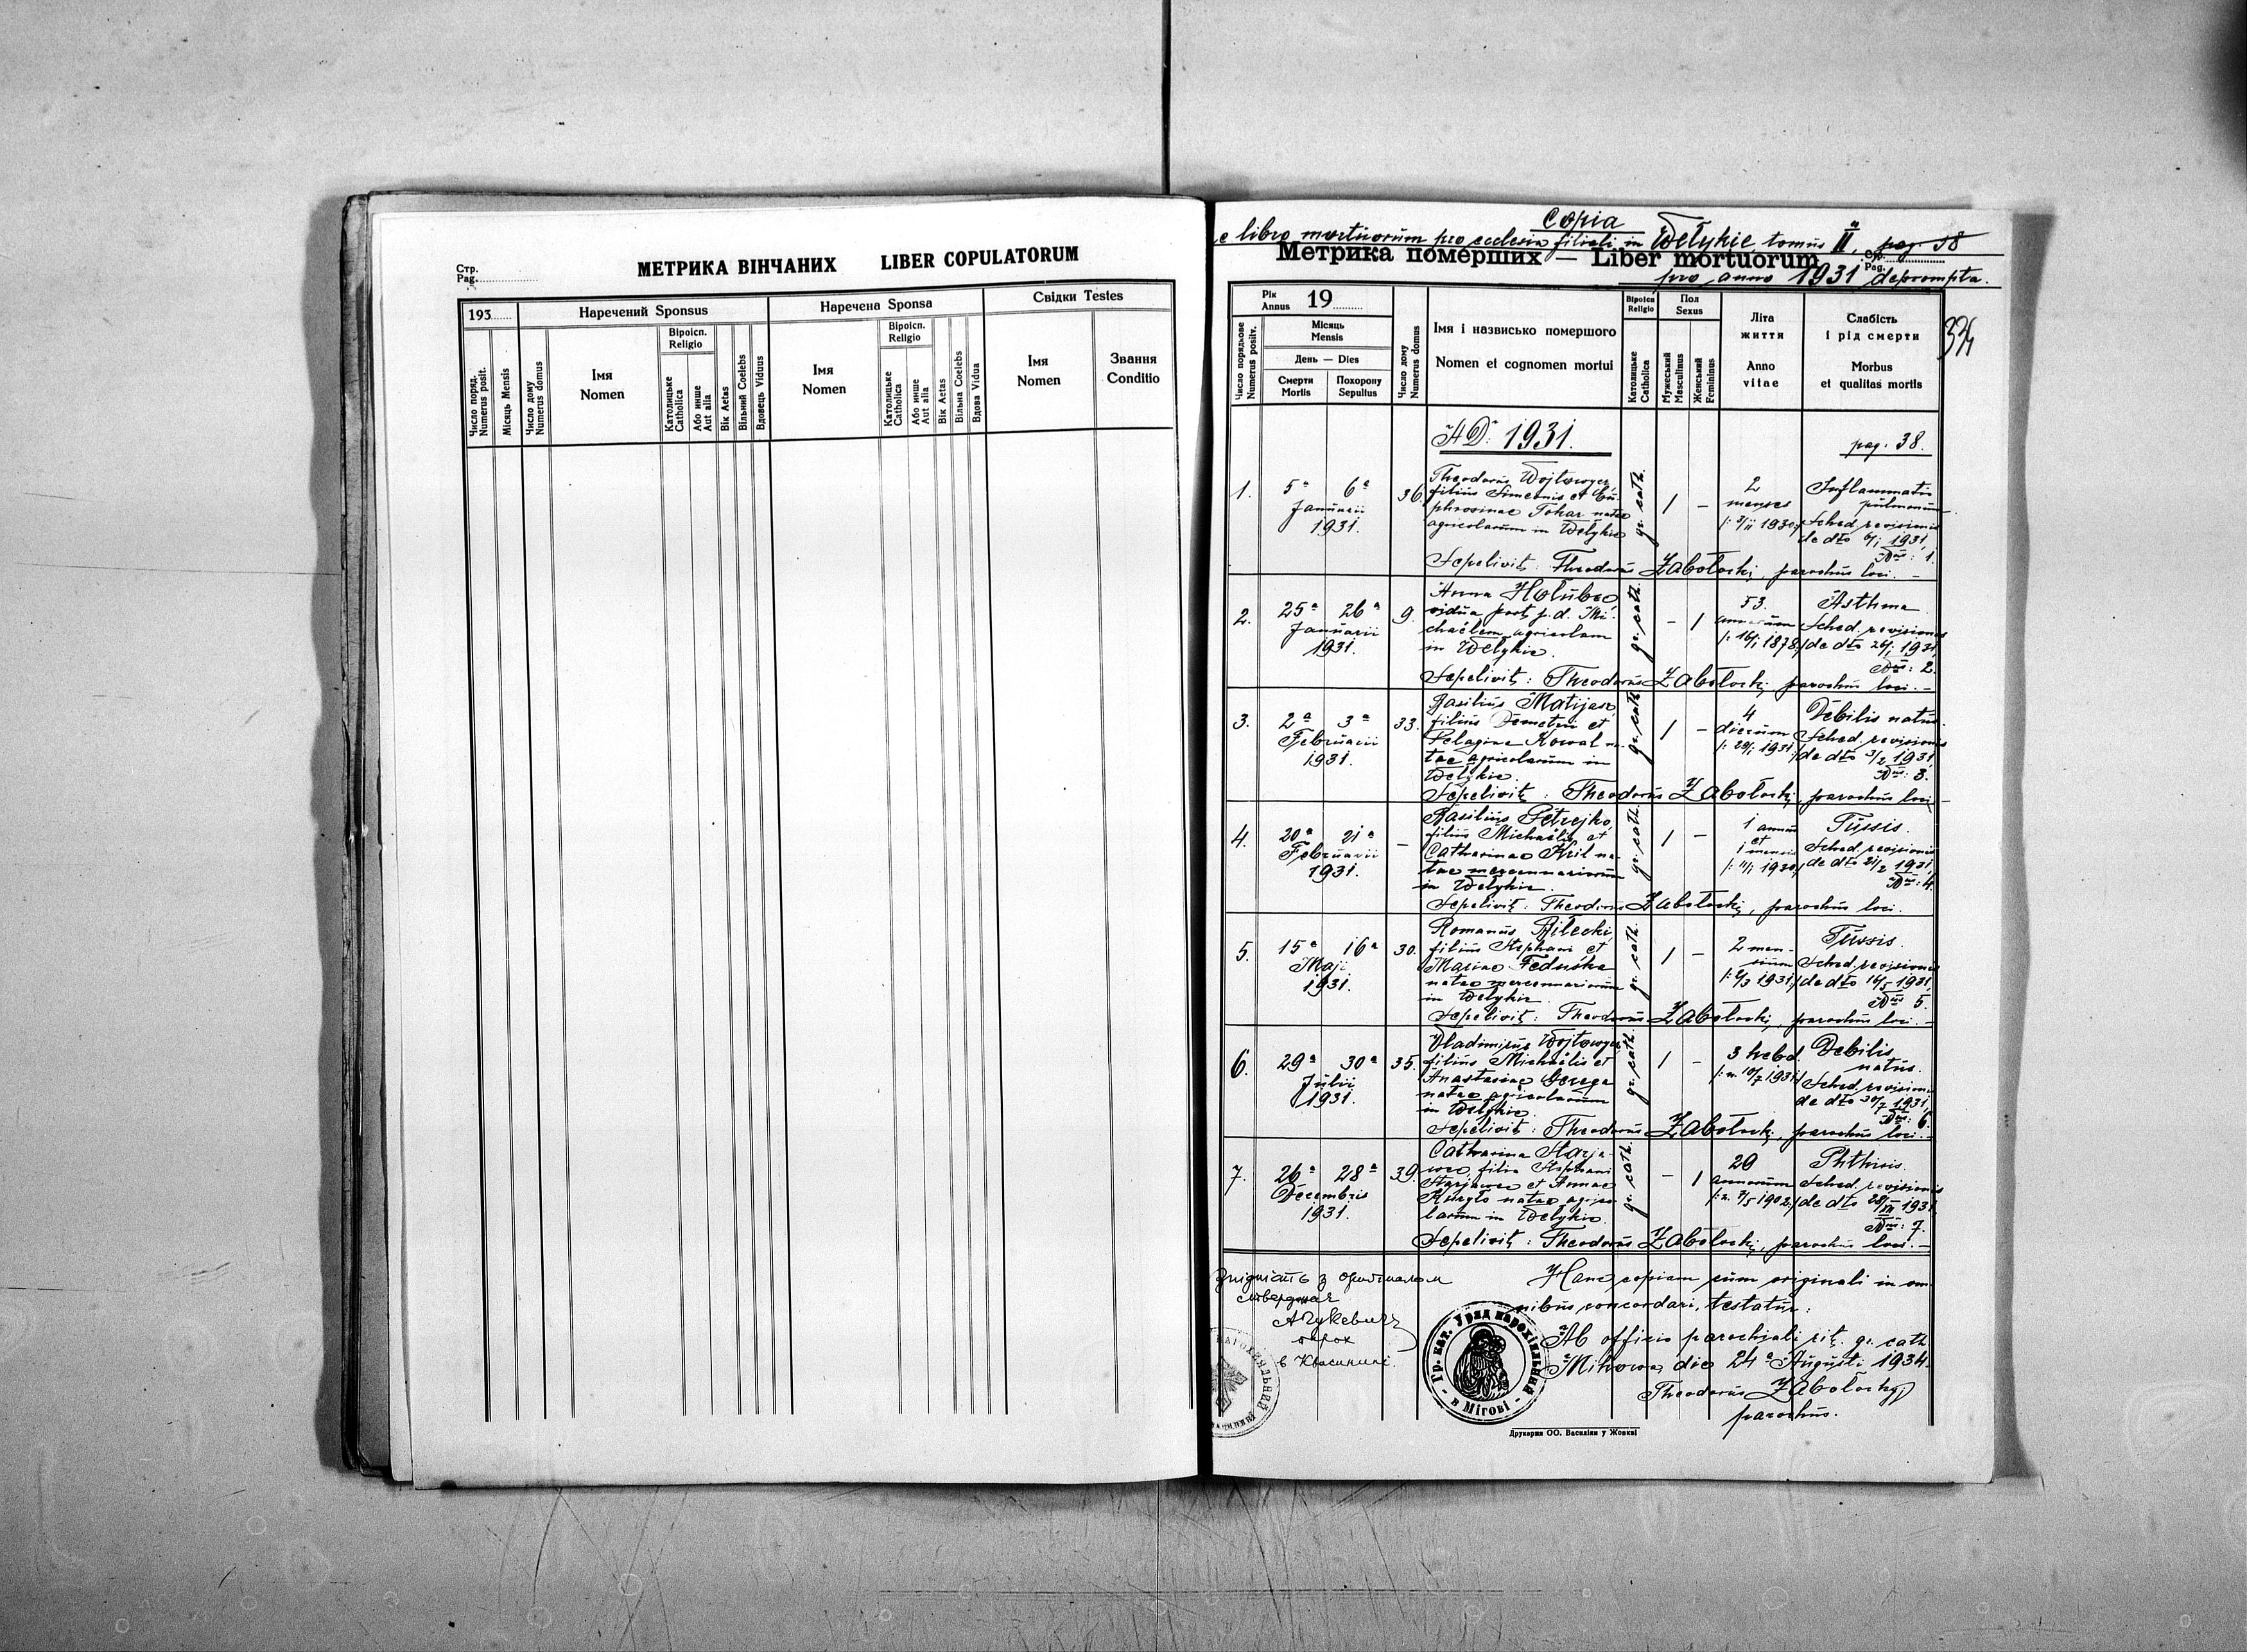 Стр.
Pag.
МЕТРИКА ВІНЧАНИХ LIBER COPULATORUM
193
Наречений Sponsus
Наречена Sponsa
Свідки Testes
Число поряд.
Numerus posit.
Місяць Mensis
Число дому
Numerus domus
Імя
Nomen
Віроісп.
Religio
Католицьке
Catholica
Або инше
Aut alia
Вік Aetas
Вільний Coelebs
Вдовець Viduus
Імя
Nomen
Віроісп.
Religio
Католицьке
Catholica
Або инше
Aut alia
Вік Aetas
Вільна Coelebs
Вдова Vidua
Імя
Nomen
Звання
Conditio
Copia
e libro mortuorum pro ecclesia filiali in Wełykie tomus II. pag. 38
Метрика померших — Liber mortuorum
Стр.
Pag.
pro anno 1931 deprompta.
334
Число порядкове
Numerus positiv.
Рік
Annus 19
Місяць
Mensis
День — Dies
Смерти
Mortis
Похорону
Sepultus
Число дому
Numerus domus
Імя і назвисько помершого
Nomen et cognomen mortui
Віроісп
Religio
Католицьке
Catholica
Пол
Sexus
Мужеський
Masculinus
Женський
Femininus
Літа
життя
Anno
vitae
Слабість
і рід смерти
Morbus
et qualitas mortis
AD: 1931.
pag. 38.
1.
5a 6a
Januarii
1931.
36.
Theodorus Wojtowycz,
filius Simeonis et Eu-
phrosinae Tokar natae
agricolarum in Wełykie
gr. cath.
1 –
2
menses
Inflammatio
pulmonum
Sched. revisionis
de dto 6/1 1931,
Nus: 1.
Sepelivit: Theodorus Zabołocki, parochus loci. –
2.
25a 26a
Januarii
1931.
9.
Anna Hołubec
vidua post p.d. Mi-
chaëlem agricolam
in Wełykie.
gr. cath.
– 1
53.
annorum
Asthma
Sched. revisionis
de dto 26/1 1931,
Nus: 2.
Sepelivit: Theodorus Zabołocki, parochus loci. –
3.
2a 3a
Februarii
1931.
33.
Basilius Matijas,
filius Demetrii et
Pelagiae Kowal na-
tae agricolarum in
Wełykie.
gr. cath.
1 –
4
dierum
/: 29/1 1931:/
Debilis natus.
Sched. revisionis
de dto 3/2 1931,
Nus: 3.
Sepelivit: Theodorus Zabołocki, parochus loci. –
4.
20a 21a
Februarii
1931.
–
Basilius Petrejko,
filius Michaëlis et
Catharinae Kril na-
tae mercennariorum
in Wełykie.
gr. cath.
1 –
1 annus
et
1 mensis
Tussis.
Sched. revisionis
de dto 21/2 1931,
Nus: 4.
Sepelivit: Theodorus Zabołocki, parochus loci.
5.
15a 16a
Maji
1931.
30.
Romanus Biłecki,
filius Stephani et
Mariae Feduśka
natae mercennariorum
in Wełykie.
gr. cath.
1 –
2 men-
sium
Tussis.
Sched. revisionis
de dto 16/5 1931,
Nus 5.
Sepelivit: Theodorus Zabołocki, parochus loci. –
6.
29a 30a
Julii
1931.
35.
Vladimirus Wojtowycz
filius Michaëlis et
Anastasiae Gerega
natae agricolarum
in Wełykie.
gr. cath.
1 –
3 hebd.
/: n. 10/7 1931:/
Debilis
natus.
Sched. revisionis
de dto 30/7 1931,
Nus: 6.
Sepelivit: Theodorus Zabołocki, parochus loci. –
7.
26a 28a
Decembris
1931.
39.
Catharina Starja-
wec, filia Stephani
Starjawec et Annae
natae agrico-
larum in Wełykie.
gr. cath.
– 1
29
annorum
/: n. 7/5 1902:/
Phthisis.
Sched. revisionis
de dto 28/XII 1931,
Nus: 7.
Sepelivit: Theodorus Zabołocki, parochus loci. –
Згідність з оригіналом
стверджає
в Квасинині.
Hanc copiam cum originali in om-
nibus concordari, testatur:
Ab officio parochiali rit. gr. cath
Mihowa, die 24a Augusti 1934.
Theodorus Zabołockyj
parochus.
Гр. кат. Уряд парохіяльний
в Мігові
Друкарня ОО. Василіян у Жовкві